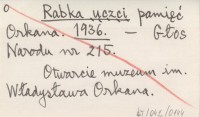 Rabka uczci pamięć
Orkana. 1936. – Głos
Narodu nr 215.
Otwarcie muzeum im.
Władysława Orkana.